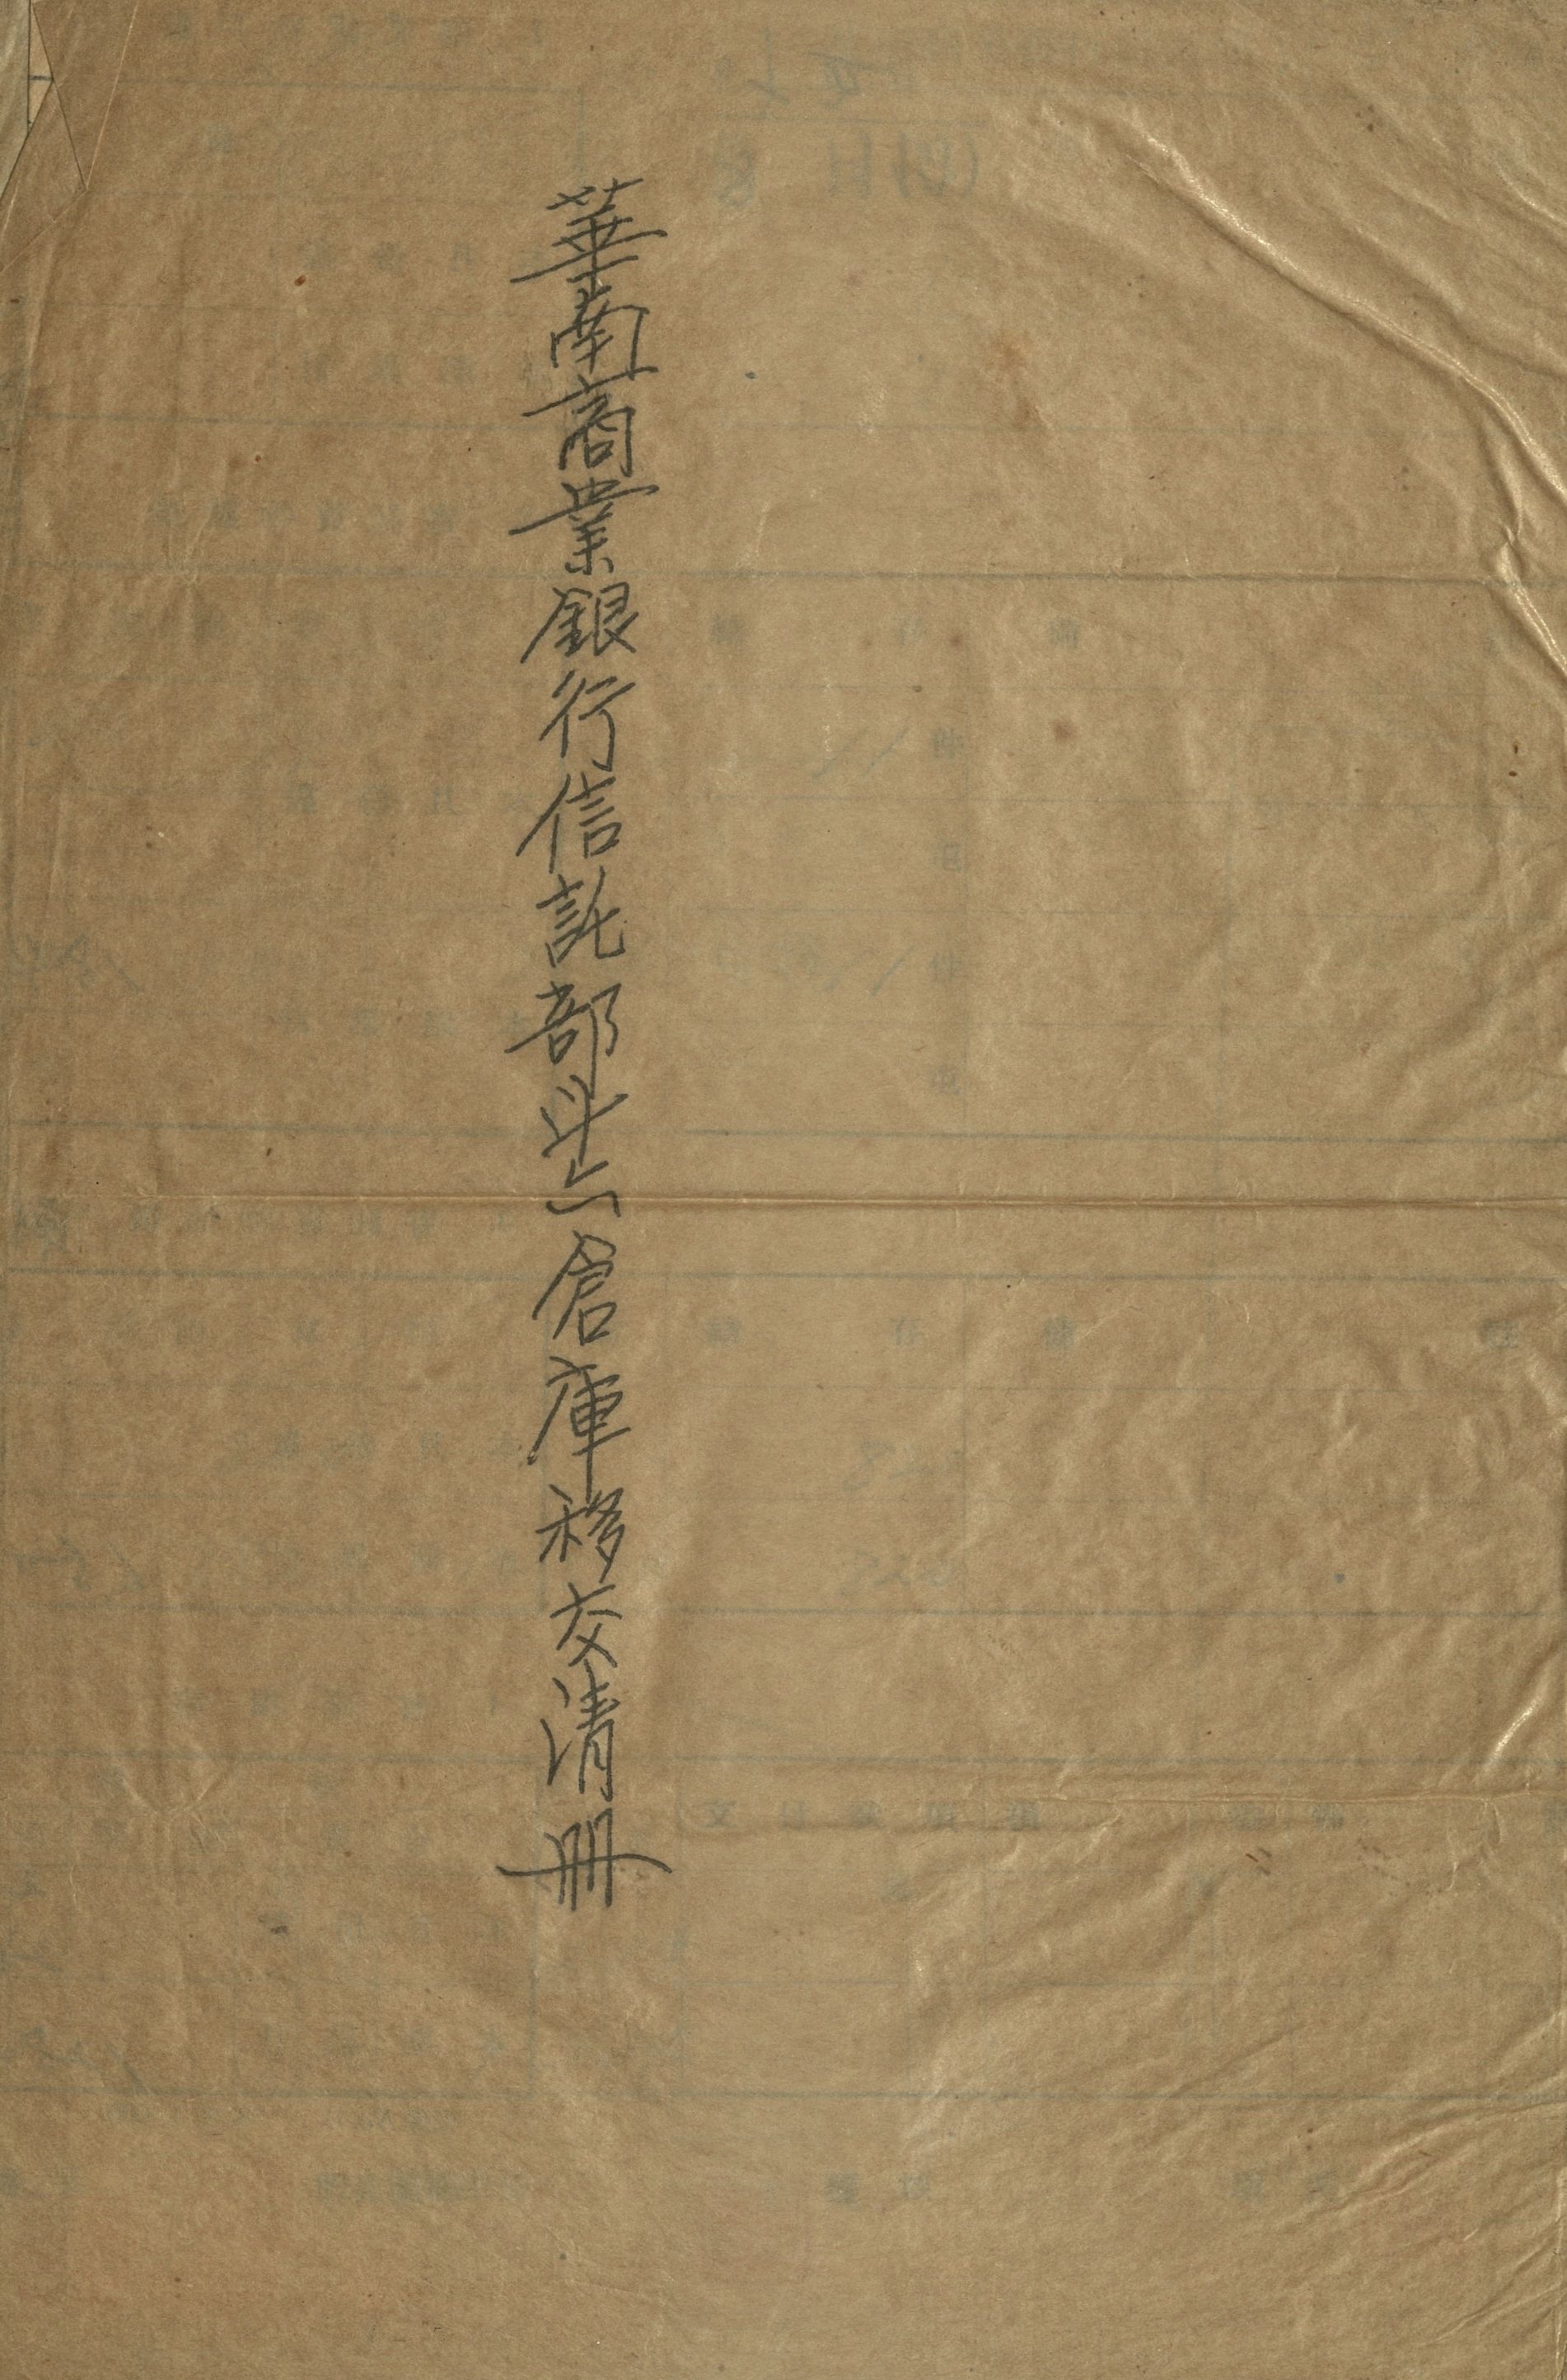 華南商業銀行信託部斗六倉庫移交清冊